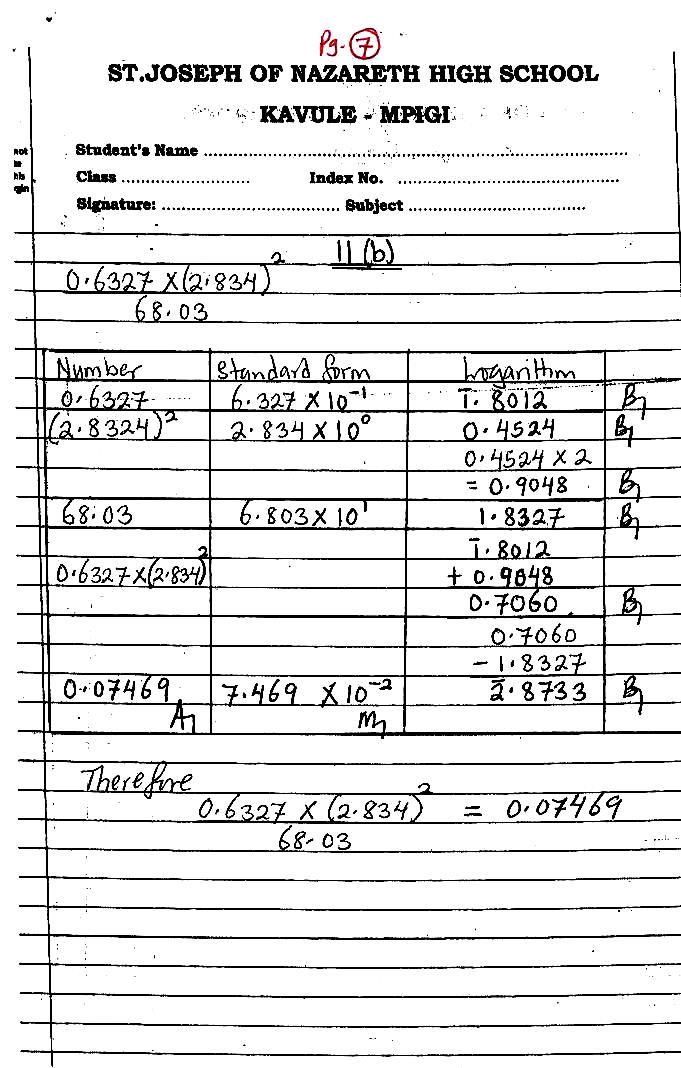 Pg. 7
ST.JOSEPH OF NAZARETH HIGH SCHOOL
KAVULE - MPIGI
not
his
gin
Student's Name ........................................................................
Class ........................ Index No. .........................................
Signature: ................................. Subject .................................
11 (b)
0.6327 X (2.834)²
68.03
Number Standard form Logarithm
0.6327 6.327 X 10⁻¹ 1̄.8012 B1
(2.8324)² 2.834 X 10⁰ 0.4524 B1
0.4524 X 2
= 0.9048 B1
68.03 6.803 X 10¹ 1.8327 B1
1̄.8012
0.6327 X (2.834)² + 0.9048
0.7060 B1
0.7060
- 1.8327
0.07469 7.469 X 10⁻² 2̄.8733 B1
A1 M1
Therefore
0.6327 X (2.834)² = 0.07469
68.03